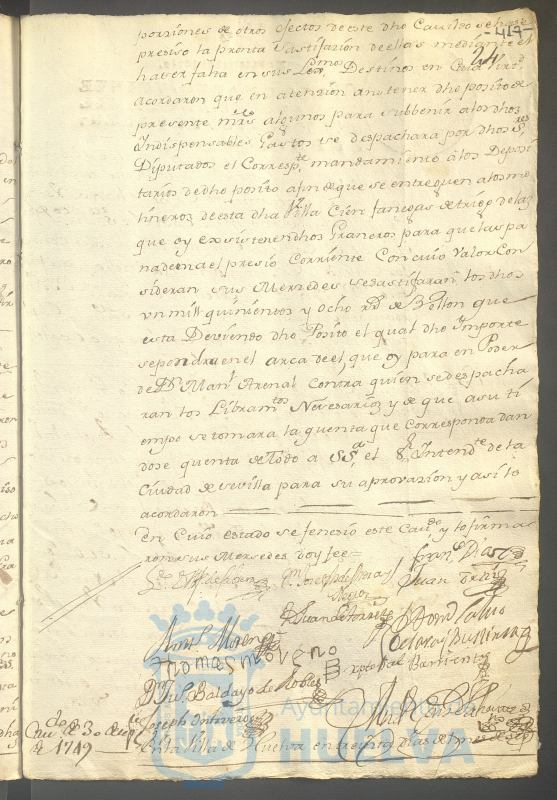 -417-
porziones de otros efectos de este dho Cavildo se haze
preziso la pronta Sastifazion de ellas mediante el
hazer falta en sus Destinos en
acordaron que en atenzion a no tener dho posito de
presente mrs algunos para subbenir a los dhos
Yndispensables Gastos se despachara por dhos Sres
Diputados el Correspte mandamiento a los Deposi
tarios de dho posito afin de que se entreguen a los mo
lineros de esta dha Villa Cien fanegas de trigo de las
que oy existen en dhos Graneros para que las pa
nadeen a el presio Corriente Con cuio Valor Con
sideran sus Mersedes se sastifaran los dhos
un mill quinientos y ocho Rs de Bellon que
esta Deviendo dho Posito el qual dho Ymporte
se pondra en el arca de el, que oy para en Poder
de Dn Manl Arenal Contra quien se despacha
ran los Libramtos Nesesarios y de que a su ti
empo se tomara la quenta que Corresponda dan
dose quenta de todo a SSa el Sr Yntendte de la
Ciudad de Sevilla para su aprovazion y asi lo
acordaron
En Cuio estado se fenesio este Cavdo y lo firma
ron sus Mersedes Doy fee
Juan Diaz
Moreno
Thomas Moreno
Barrientos
Baldayo de Robles
Joseph Ontiveros
Cavdo de 30 de
de 1749
En la Villa de Huelva en treinta dias de mes de
Ayuntamiento de
HUELVA